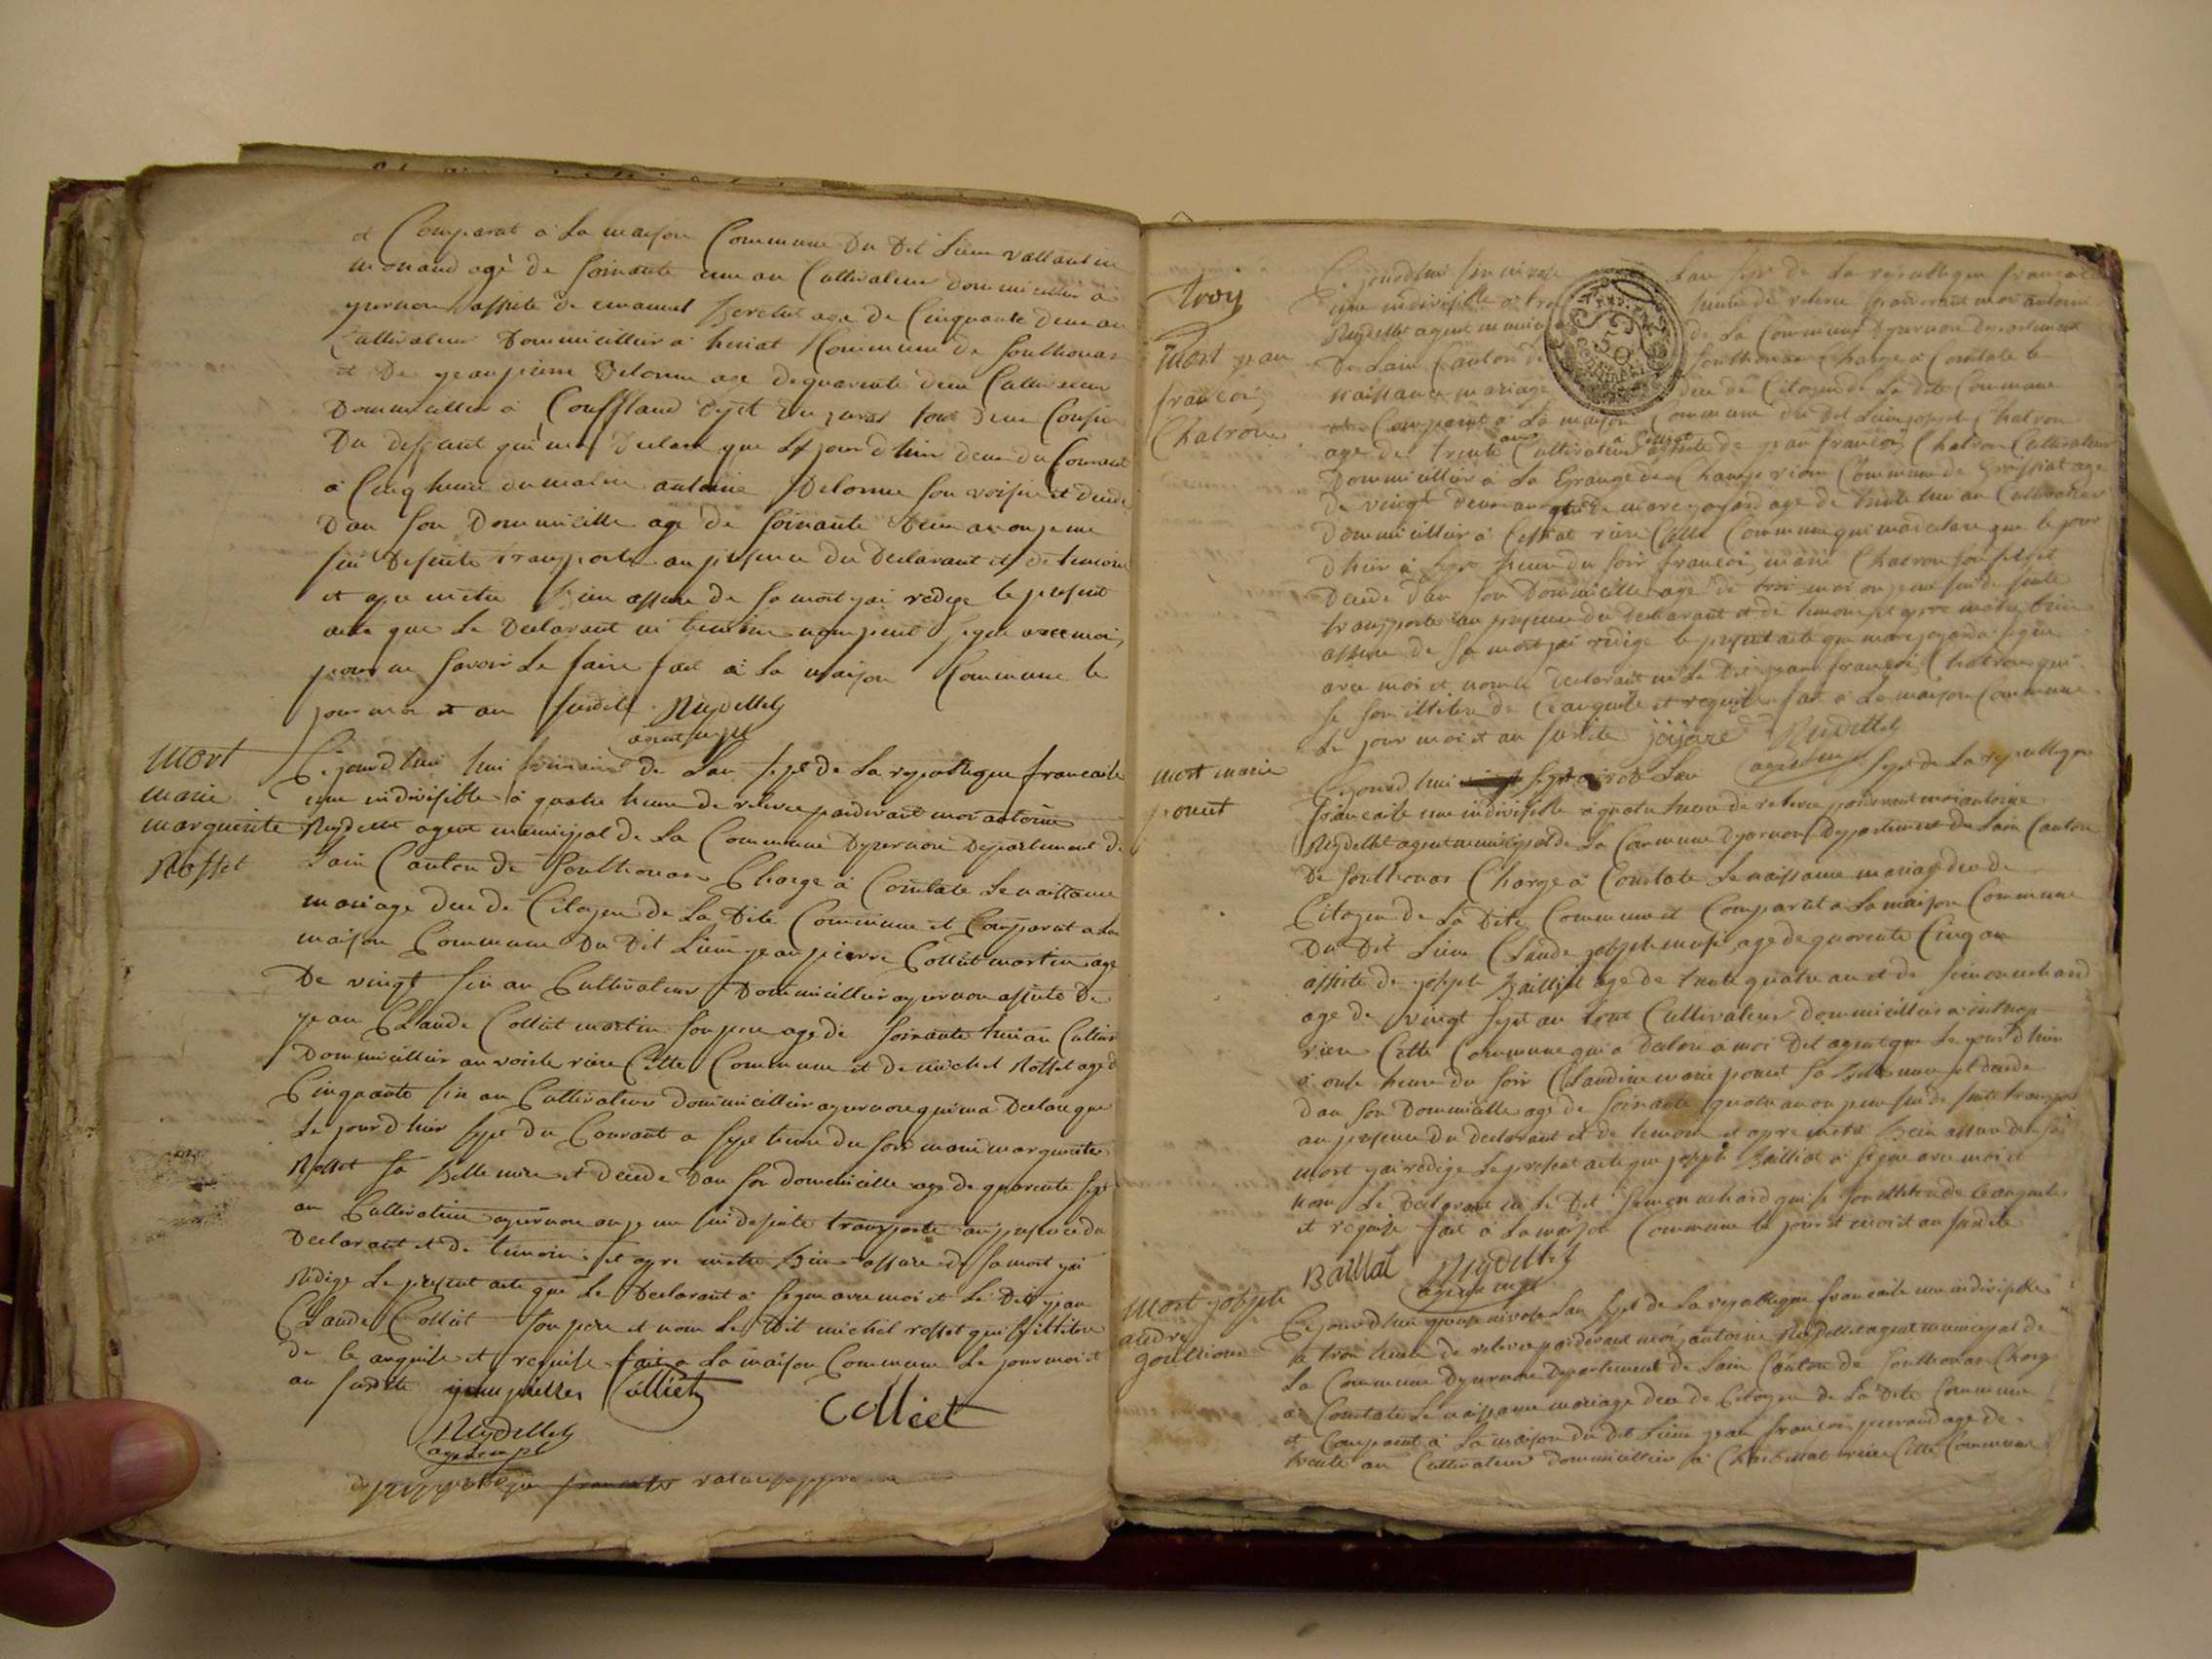 et Comparat a la maison Commune Du Dit Lieu vallantin
monand agé de soixante une an Cultivateur dommicillier a
yzernore assisté de emanuel age de Cinquante deux an
Cultivateur Dommicillier a heriat Commune de sonthonax
et De jean pierre Delorme age dequarente deux Cultivateur
Dommicillier a Couffland tous deux Cousin
Du deffunt qui m'on Declaré que le jour d'hier deux du Courant
a Cinq heure du matin antoine Delorme son voisin et decede
Dan son Dommicille age de soixante deux an on je me
sui Desuite transporte an presence du Declarant et de temoin
et apre metre bien assure de sa mort jai redige le present
acte que le Declarant ni temoin non peut signe avec moi
pour ne savoir le faire fait a la maison Commune le
jour moi et an susdite Reydellet
agent mpl
mort
marie
marguerite
Rosset
Cejourd'hui hui frimaire de Lan sept de la republique francaise
une indivisible a quatre heure de releve pardevant moi antoine
Reydellet agent municipal de la Commune Dyzernore Departement de
Lain Canton de Sonthonax Charge a Constate le naissance
mariage deu de Citoyen de la Dite Commune et Comparat a la
maison Commune Du Dit Lieu jean pierre Colliet martin age
De vingt six an Cultivateur Dommicillier ayzernore assisté De
jean Claude Colliet martin son pere age de soixante hui an Cultiva
Dommicillier au voisle riere Cette Commune et de michel Rosset age d
Cinquante six an Cultivateur dommicillier ayzernore qui ma Declare que
le jour d'hier sept du Courant a sept heure du soir marie marguerite
Rosset sa Belle mere et decede Dan son domicille age de quarente sept
an Cultivatrice ayzernore on je me sui desuite transporte an presence du
Declarant et de temoin et apre metre bien assure de sa mort jai
Redige le present acte que le Declarant a signe avec moi et le Dit jean
Claude Colliet son pere et nom le Dit michel rosset qui sillitere
de ce anquise et requise fait a la maison Commune le jour moi et
an susdite jeanpierre Colliet
Colliet
Reydellet
agent mpl
troy
mort jean
francois
Chatron
Cejourd'hui six nivose Lan sept de la republique francaise
une indivisible a troi heure de releve pardevant moi antoine
Reydellet agent munici de la Commune Dyzernore Departement
De Lain Canton de sonthonax Charge a Constate le
naissance mariage deu de Citoyen de la dite Commune
et Comparat a la maison Commune du Dit Lieu joseph Chatron
age de trente an Cultivateur assiste de jean francois Chatron Cultivateur
Dommicillier a la Grange de Champ rion Commune de Groissiat age
de vingt deux an et de marc joyard age de trente hui an Cultivateur
Dommicillier a Cessiat riere Cette Commune qui ma declare que le jour
d'hier a sept heure du soir francois marie Chatron son fils et
decede dan son Dommicille age de troi moi on je me sui de suite
transporte an presence du Declarant et de temoin et apre metre bien
assure de sa mort jai redige le present acte que marc joyard a signe
avec moi et nom le Declarant ni le Dit jean francois Chatron qui
se son illitere de Ce anquise et requise fait a la maison Commune
le jour moi et an susdite jojare Reydellet
agent mpl
mort marie
poncet
Cejourd'hui sept nivose Lan sept de la republique
francaise une indivisible a quatre heure de releve pardevant moi antoine
Reydellet agent municipal de la Commune Dyzernore Departement de Lain Canton
De sonthonax Charge a Constate le naissance mariage deu de
Citoyen de la Dite Commune et Comparat a la maison Commune
Du Dit Lieu Claude joseph age de quarente Cinq an
assiste de joseph Bailliat age de trente quatre an et de simon
age de vingt sept an tous Cultivateur dommicillier a
riere Cette Commune qui a declare a moi Dit agent que le jour d'hier
a onse heure du soir Claudine marie poncet sa Belle mere et decede
dan son Dommicille age de soixante quatre an on je me sui de suite transporte
an presence du declarant et de temoin et apre metre bien assure de sa
mort jai redige le present acte que joseph Bailliat a signe avec moi et
nom le Declarant ni le Dit simon qui se son illitere de Ce anquise
et requise fait a la maison Commune le jour et moi et an susdite
Baillat Reydellet
agent mpl
mort joseph
andre
gouttione
Cejourd'hui nivose lan sept de la republique francaise une indivisible
a troi heure de releve pardevant moi antoine Reydellet agent municipal de
La Commune Dyzernore Departement de Lain Canton de sonthonax Charge
a Constate le naissance mariage deu de Citoyen de la Dite Commune
et Comparat a la maison du dit Lieu jean francois age de
trente an Cultivateur dommicillier a riere Cette Commune